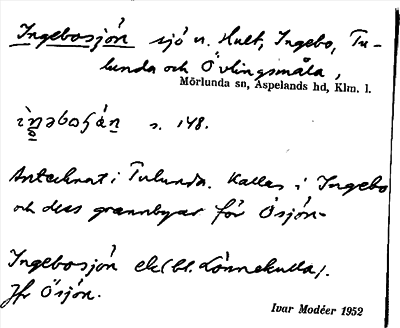 Ingebosjön sjö n. Hult, Ingebo, Tu-
lunda och Övlingsmåla,
Mörlunda sn, Aspelands hd, Klm. l.
s. 148.
Antecknat i Tulunda. Kallas i Ingebo
och dess grannbyar för Ösjön.
Ingebosjön ek (bl. Lönnekulla).
Jfr Ösjön.
Ivar Modéer 1952